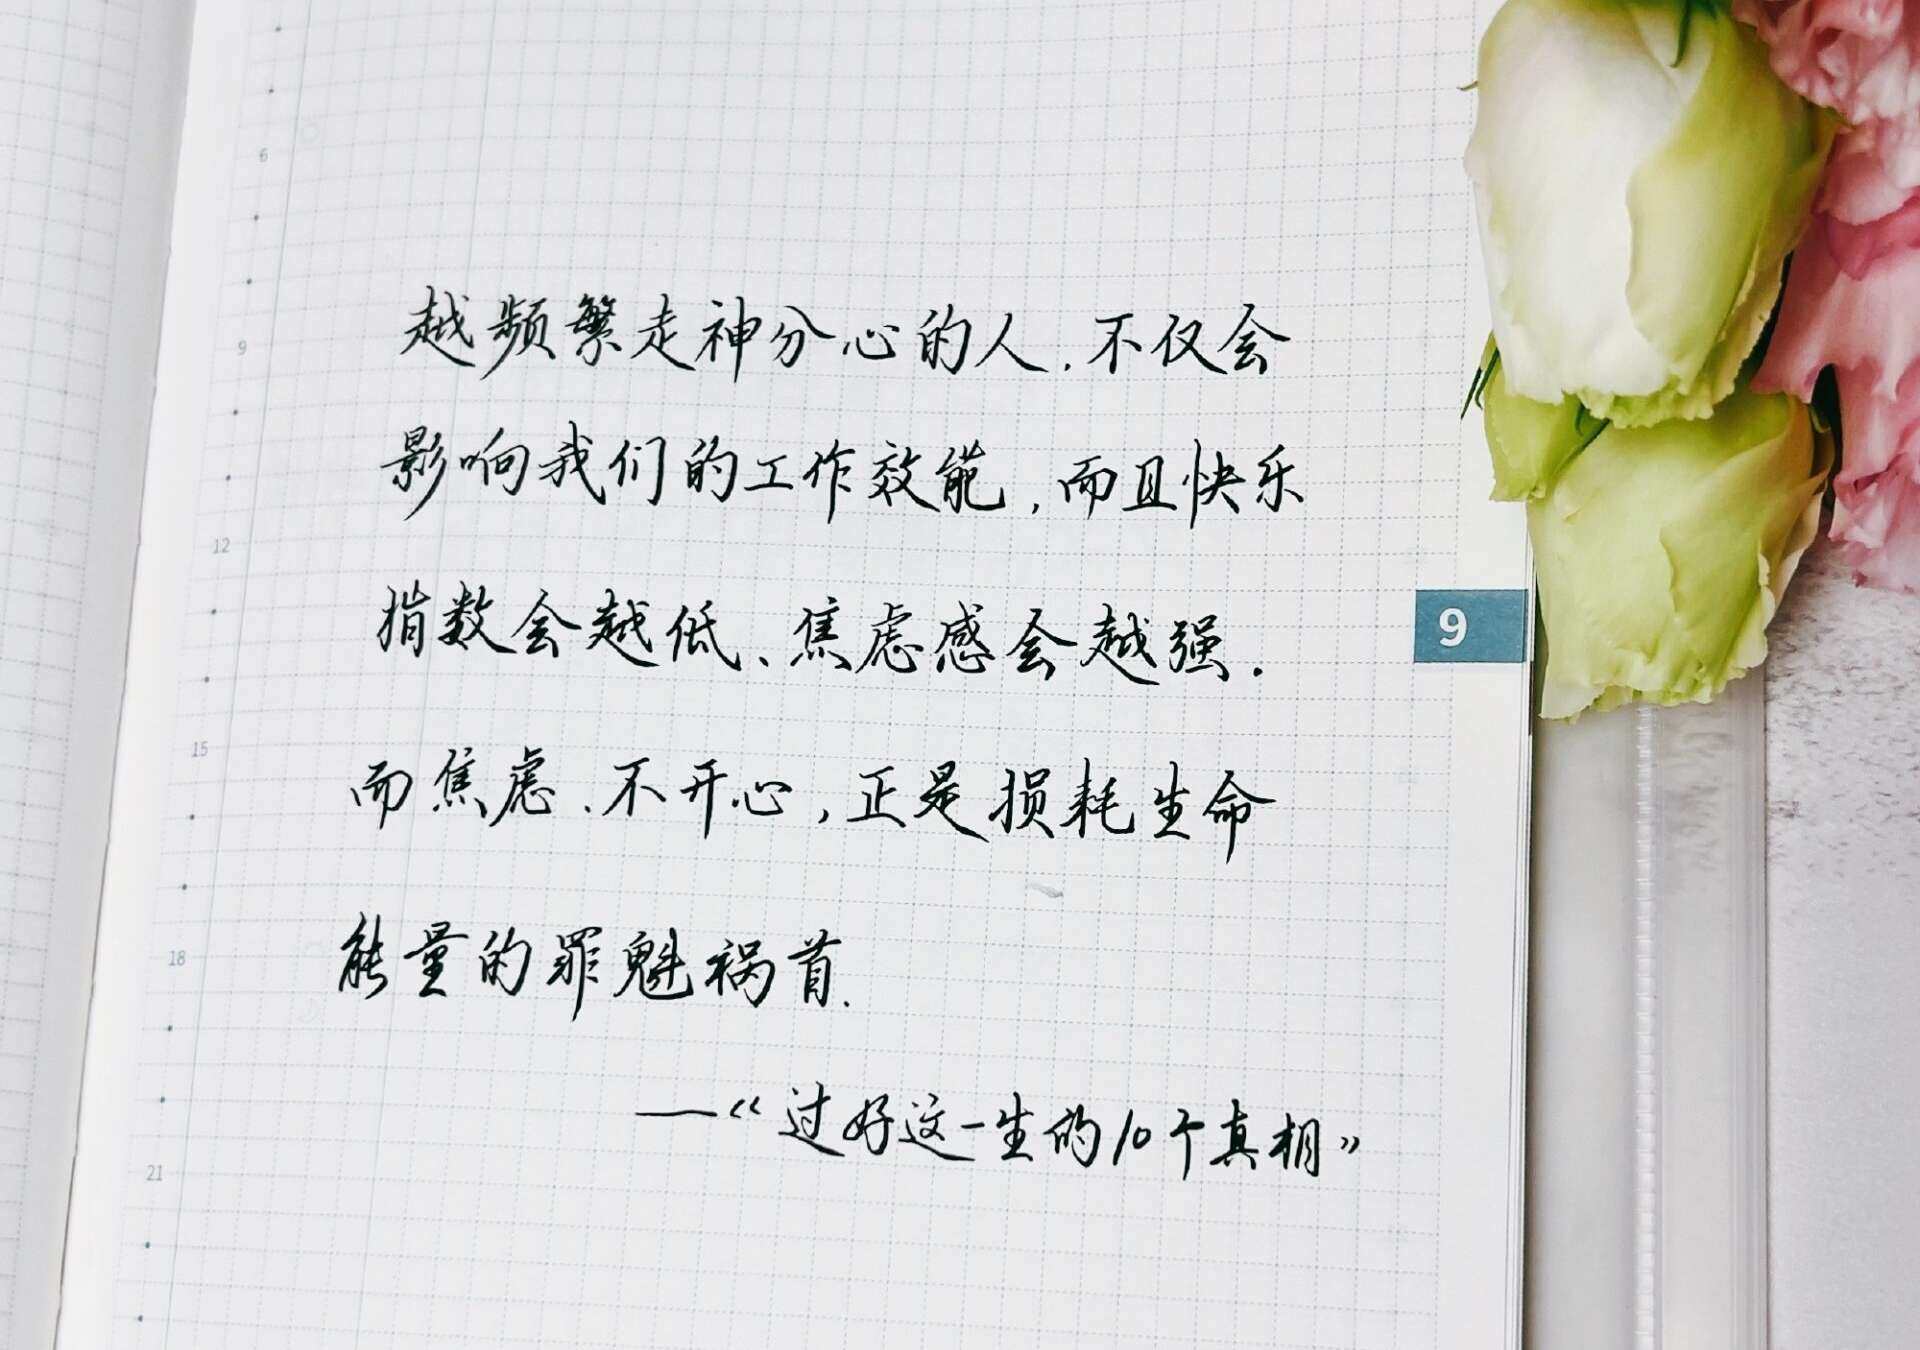 6
越频繁走神分心的人.不仅会
9
影响我们的工作效能,而且快乐
12
指数会越低、焦虑感会越强.
9
而焦虑、不开心,正是损耗生命
15
能量的罪魁祸首.
18
——《过好这一生的10个真相》
21